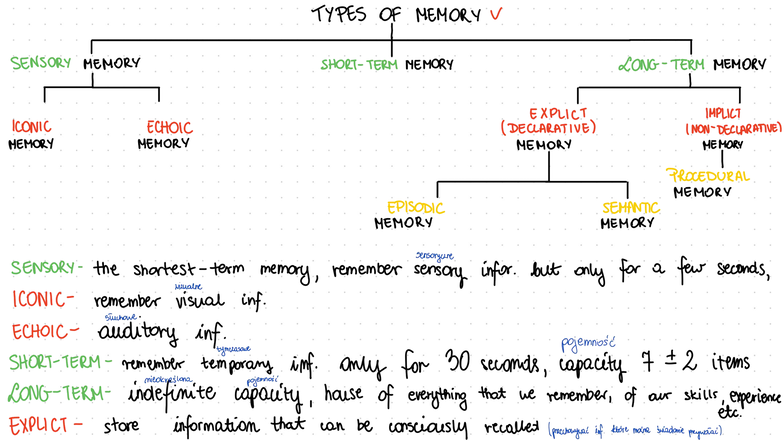 TYPES OF MEMORY ✓
SENSORY MEMORY SHORT-TERM MEMORY LONG-TERM MEMORY
ICONIC MEMORY ECHOIC MEMORY EXPLICT (DECLARATIVE) MEMORY IMPLICT (NON-DECLARATIVE) MEMORY
PROCEDURAL MEMORY
EPISODIC MEMORY SEMANTIC MEMORY
sensoryczne
SENSORY - the shortest-term memory, remember sensory infor. but only for a few seconds,
wizualne
ICONIC - remember visual inf.
słuchowe
ECHOIC - auditory inf.
tymczasowe pojemność
SHORT-TERM - remember temporary inf. only for 30 seconds, capacity 7 ± 2 items
nieokreślona pojemność
LONG-TERM - indefinite capacity, house of everything that we remember, of our skills, experience etc.
EXPLICT - store information that can be consciously recalled (przechowywać inf. które można świadomie przywołać)